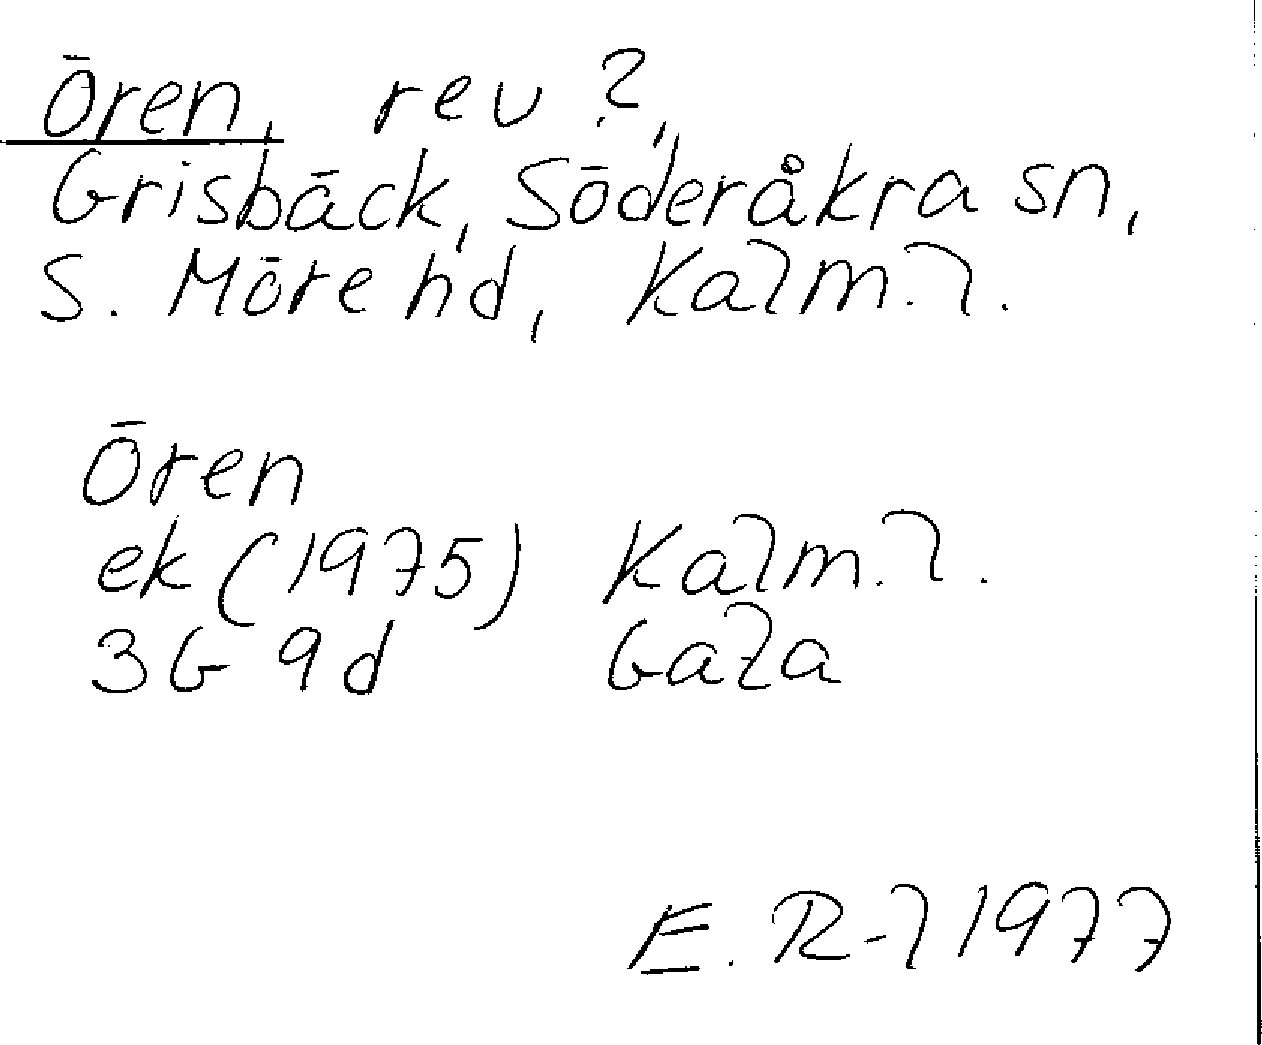 Ören, rev?,
Grisbäck, Söderåkra sn,
S. Möre hd, Kalm. l.
Ören
ek (1975) Kalm. l.
3G 9d Gaza
E. R-l 1977